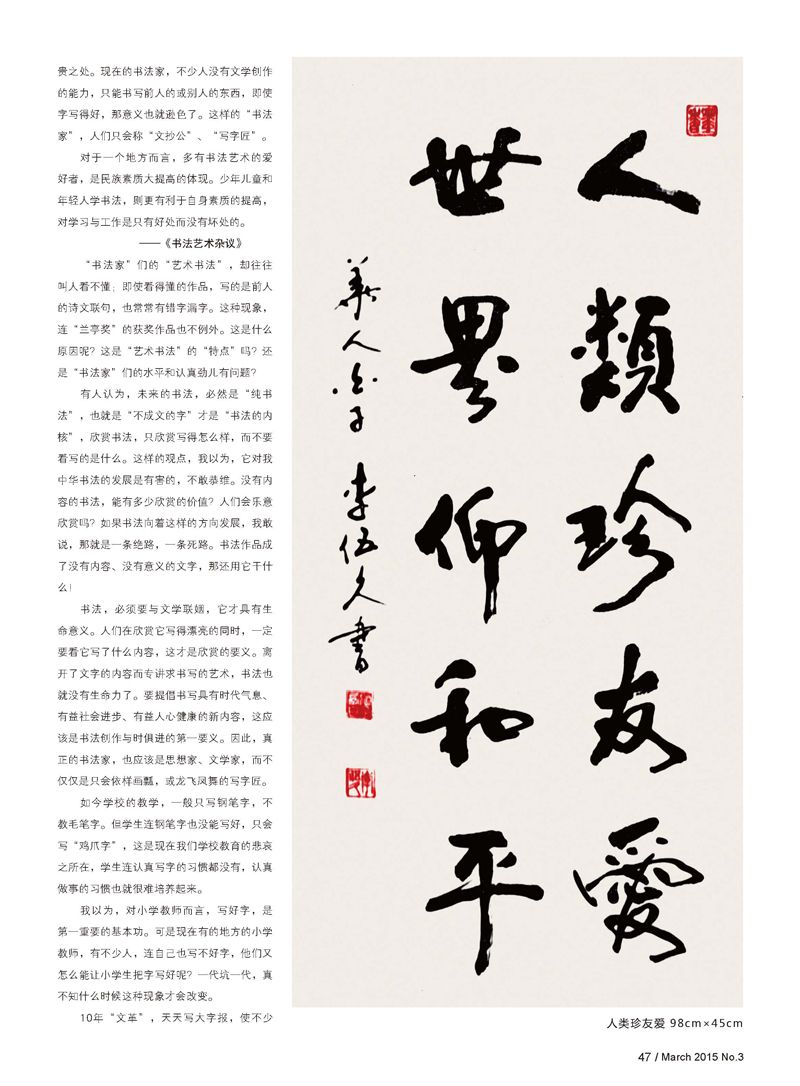 贵之处。现在的书法家，不少人没有文学创作
的能力，只能书写前人的或别人的东西，即使
字写得好，那意义也就逊色了。这样的“书法
家”，人们只会称“文抄公”、“写字匠”。
对于一个地方而言，多有书法艺术的爱
好者，是民族素质大提高的体现。少年儿童和
年轻人学书法，则更有利于自身素质的提高，
对学习与工作是只有好处而没有坏处的。
——《书法艺术杂议》
“书法家”们的“艺术书法”，却往往
叫人看不懂；即使看得懂的作品，写的是前人
的诗文联句，也常常有错字漏字。这种现象，
连“兰亭奖”的获奖作品也不例外。这是什么
原因呢？这是“艺术书法”的“特点”吗？还
是“书法家”们的水平和认真劲儿有问题？
有人认为，未来的书法，必然是“纯书
法”，也就是“不成文的字”才是“书法的内
核”，欣赏书法，只欣赏写得怎么样，而不要
看写的是什么。这样的观点，我以为，它对我
中华书法的发展是有害的，不敢恭维。没有内
容的书法，能有多少欣赏的价值？人们会乐意
欣赏吗？如果书法向着这样的方向发展，我敢
说，那就是一条绝路，一条死路。书法作品成
了没有内容、没有意义的文字，那还用它干什
么！
书法，必须要与文学联姻，它才具有生
命意义。人们在欣赏它写得漂亮的同时，一定
要看它写了什么内容，这才是欣赏的要义。离
开了文字的内容而专讲求书写的艺术，书法也
就没有生命力了。要提倡书写具有时代气息、
有益社会进步、有益人心健康的新内容，这应
该是书法创作与时俱进的第一要义。因此，真
正的书法家，也应该是思想家、文学家，而不
仅仅是只会依样画瓢，或龙飞凤舞的写字匠。
如今学校的教学，一般只写钢笔字，不
教毛笔字。但学生连钢笔字也没能写好，只会
写“鸡爪字”，这是现在我们学校教育的悲哀
之所在，学生连认真写字的习惯都没有，认真
做事的习惯也就很难培养起来。
我以为，对小学教师而言，写好字，是
第一重要的基本功。可是现在有的地方的小学
教师，有不少人，连自己也写不好字，他们又
怎么能让小学生把字写好呢？一代坑一代，真
不知什么时候这种现象才会改变。
10年“文革”，天天写大字报，使不少
人類珍友愛
世界仰和平
人子 李伍久書
人类珍友爱 98cm×45cm
47 / March 2015 No.3